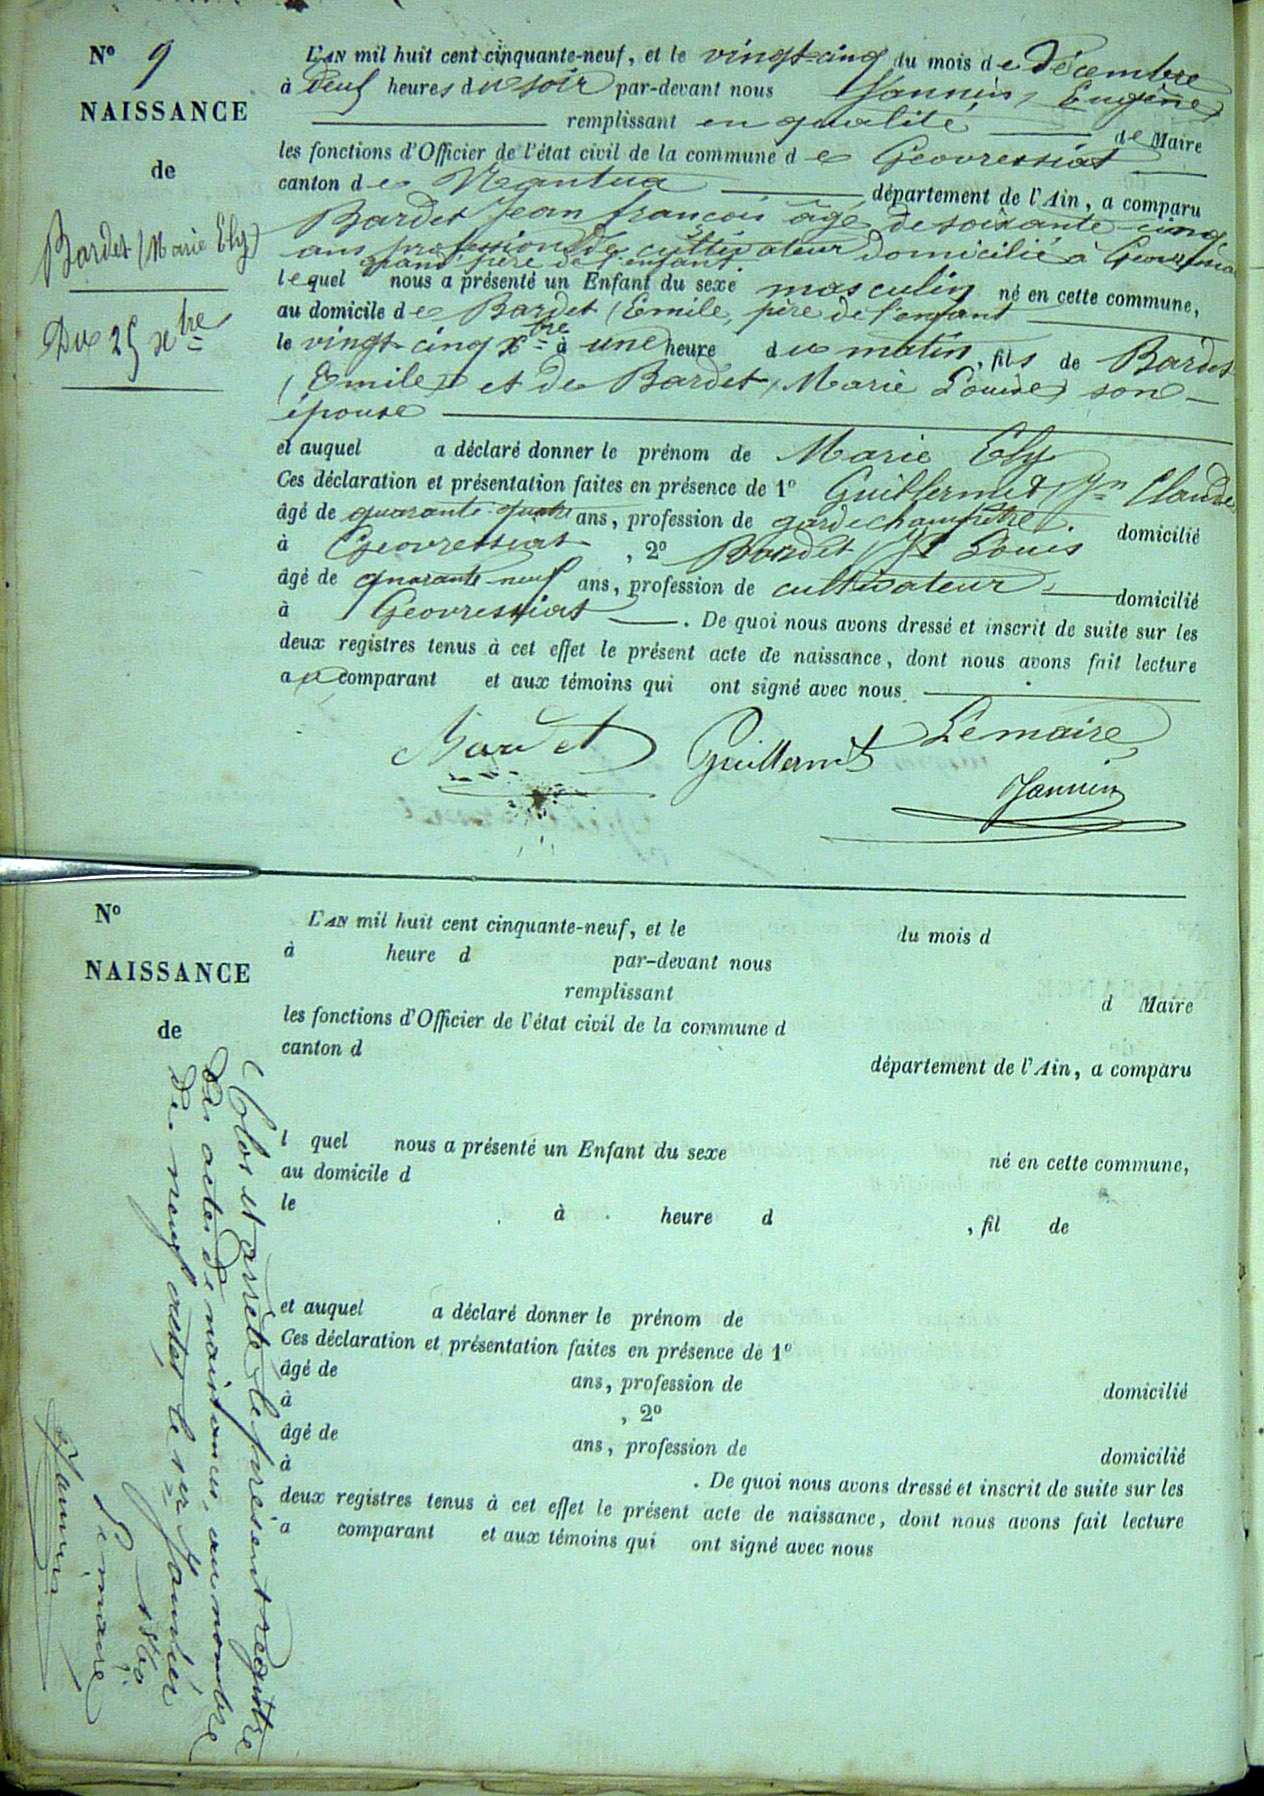 N° 9
NAISSANCE
de
Bardet (Marie Ely)
Du 25 xbre
L'AN mil huit cent cinquante-neuf, et le vingt-cinq du mois de Décembre
à deux heures du soir par-devant nous Jannin, Eugène,
remplissant en qualité de Maire
les fonctions d'Officier de l'état civil de la commune de Geovressiat
canton de Nantua département de l'Ain, a comparu
Bardet Jean françois âgé de soixante-cinq
ans profession de cultivateur domicilié à Geovressiat
grand père de l'enfant
lequel nous a présenté un Enfant du sexe masculin né en cette commune,
au domicile de Bardet (Emile, père de l'enfant
le vingt-cinq xbre à une heure du matin, fils de Bardet
(Emile) et de Bardet (Marie Louise) son
épouse
et auquel a déclaré donner le prénom de Marie Ely
Ces déclaration et présentation faites en présence de 1° Guillermet Jn Claude
âgé de quarante-quatre ans, profession de garde champêtre. domicilié
à Geovressiat, 2° Bardet Louis
âgé de quarante-neuf ans, profession de cultivateur domicilié
à Geovressiat. De quoi nous avons dressé et inscrit de suite sur les
deux registres tenus à cet effet le présent acte de naissance, dont nous avons fait lecture
au comparant et aux témoins qui ont signé avec nous
Bardet Guillermet Le maire
Jannin
N°
NAISSANCE
de
L'AN mil huit cent cinquante-neuf, et le du mois d
à heure d par-devant nous
remplissant d Maire
les fonctions d'Officier de l'état civil de la commune d
canton d département de l'Ain, a comparu
l quel nous a présenté un Enfant du sexe né en cette commune,
au domicile d
le à heure d , fil de
et auquel a déclaré donner le prénom de
Ces déclaration et présentation faites en présence de 1°
âgé de ans, profession de domicilié
à , 2°
âgé de ans, profession de domicilié
à . De quoi nous avons dressé et inscrit de suite sur les
deux registres tenus à cet effet le présent acte de naissance, dont nous avons fait lecture
a comparant et aux témoins qui ont signé avec nous
Clos et arrêté le présent registre
des actes de naissances, au nombre
de neuf actes le 1er Janvier
1860.
Le maire
Jannin